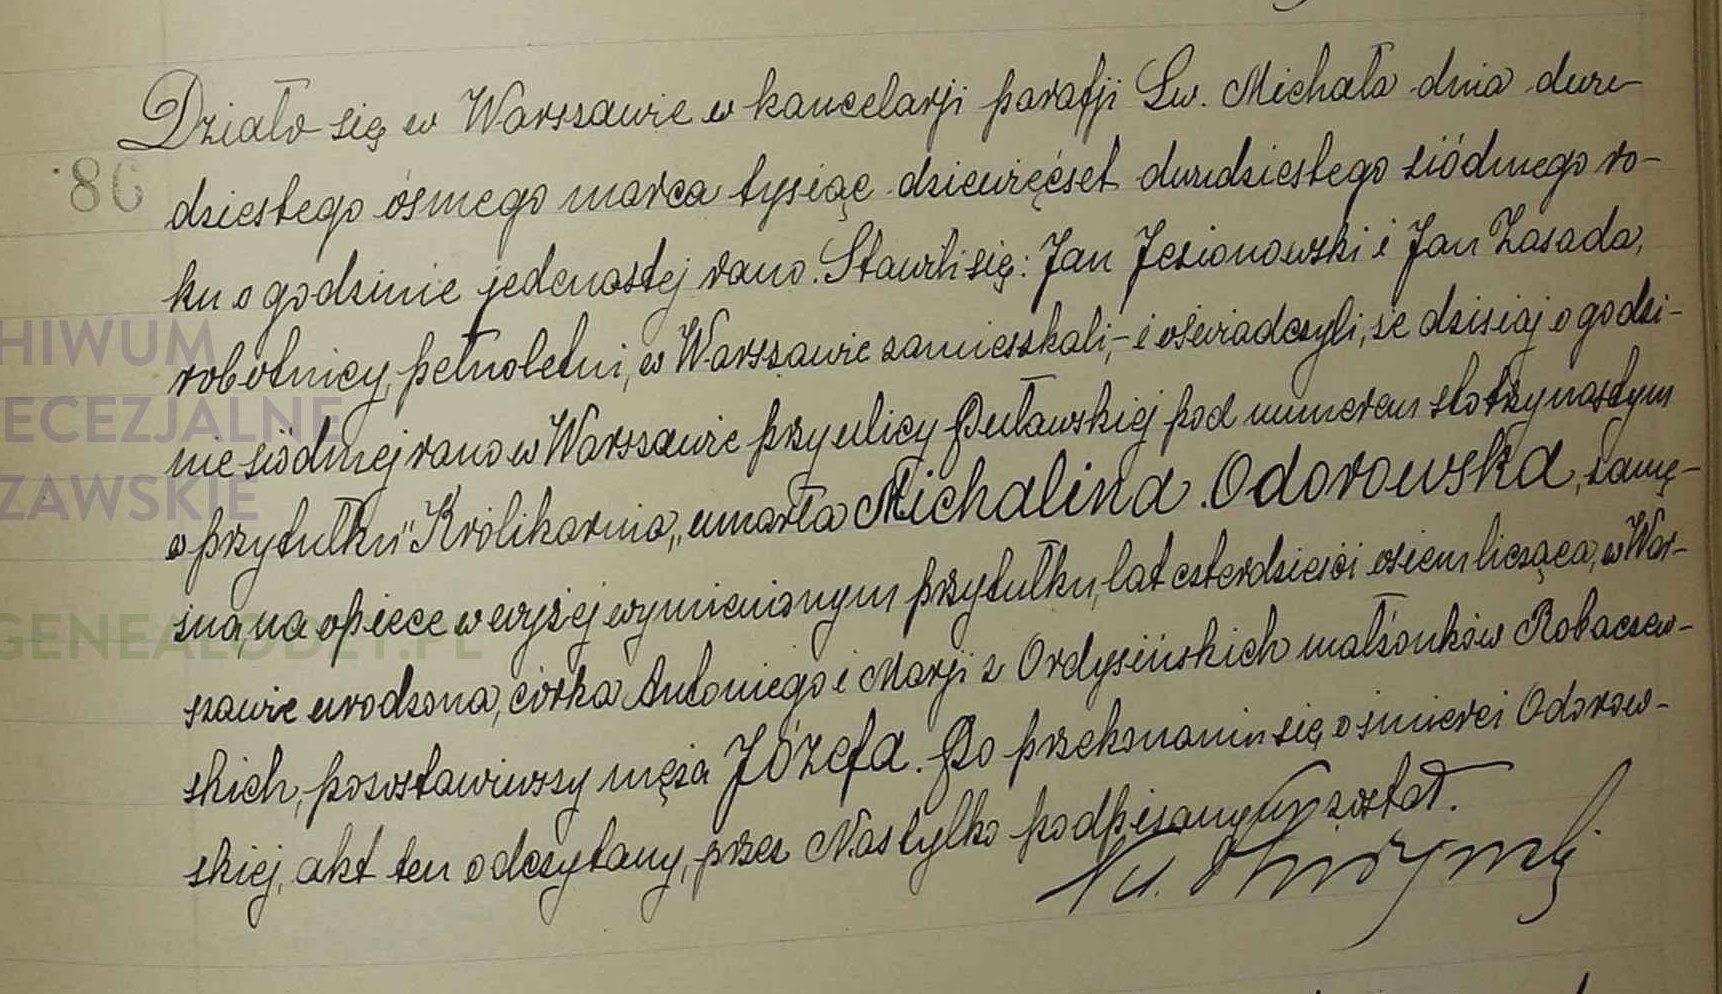 Działo się w Warszawie w kancelarji parafji Św. Michała dnia dwu-
86
dziestego ósmego marca tysiąc dziewięćset dwudziestego siódmego ro-
ku o godzinie jedenastej rano. Stawili się: Jan Jesionowski i Jan Zasada,
robotnicy, pełnoletni, w Warszawie zamieszkali,- i oświadczyli, że dzisiaj o godzi-
nie siódmej rano w Warszawie przy ulicy Puławskiej pod numerem sto trzynastym
w przytułku "Królikarnia„ umarła Michalina Odorowska, zamę-
żna, na opiece w wyżej wymienionym przytułku, lat czterdzieści osiem licząca, w War-
szawie urodzona, córka Antoniego i Marji z Ordysińskich małżonków Robaczew-
skich, pozostawiwszy męża Józefa. Po przekonaniu się o śmierci Odorow-
skiej, akt ten odczytany, przez Nas tylko podpisanym został.
HIWUM
ECEZJALNE
ZAWSKIE
GENEALODZY.PL